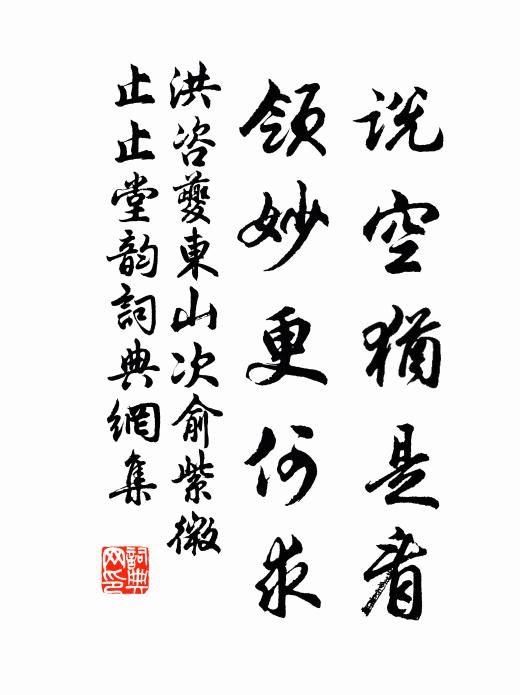 说空犹是着
领妙更何求
洪咨夔東山次俞紫微
止止堂韵詞典網集
詞典网印